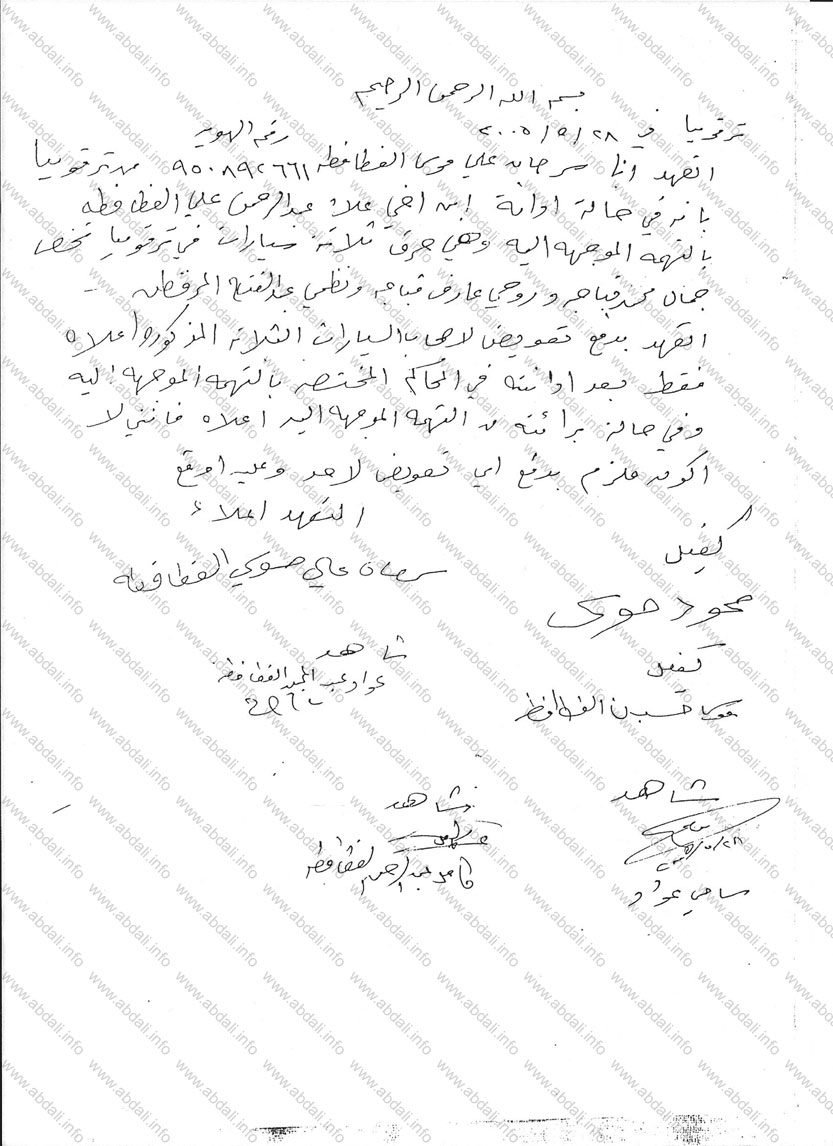 بسم الله الرحمن الرحيم
ترقوميا في ٢٨/٥/٢٠٠٥ رقم الهويه
اتعهد انا سرحان علي موسى الفطافطه ٩٥٠٨٩٢٦٦١ من ترقوميا
بانه في حالة ادانة ابن اخي علاء عبدالرحمن علي الفطافطه
بالتهمه الموجهه اليه وهي حرق ثلاثة سيارات في ترقوميا تخص
جمال محمد قباجه و روحي عارف قباجه ونظمي
اتعهد بدفع تعويض لاصحاب السيارات الثلاثه المذكوره اعلاه
فقط بعد ادانته في المحاكم المختصه بالتهمه الموجهه اليه
وفي حالة برائته من التهمه الموجهه اليه اعلاه فانني لا
اكون ملزم بدفع اي تعويض لاحد وعليه اوقع
المتعهد اعلاه
سرحان علي موسى الفطافطه
كفيل
محمود موسى
شاهد
عواد عبد المجيد الفطافطه
كفيل
حسين الفطافطه
شاهد
سامي عواد
شاهد
الفطافطه
www.abdali.info